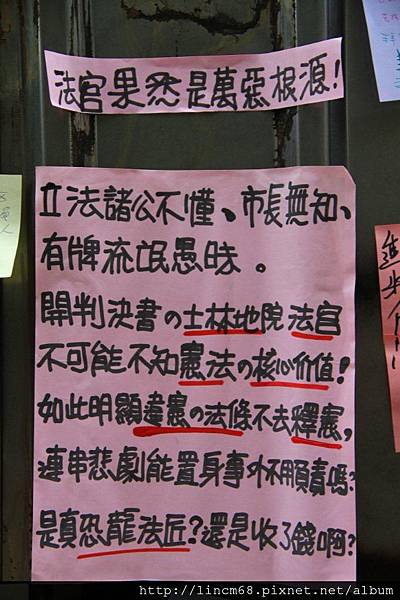 法官果然是萬惡根源!
立法諸公不懂、市長無知、
有牌流氓愚昧。
開判決書の士林地院法官
不可能不知憲法の核心价值!
如此明顯違憲の法條不去釋憲,
連串悲劇能置身事外不用負責嗎?
是真恐龍法匠?還是收了錢啊?
http://lincm68.pixnet.net/album